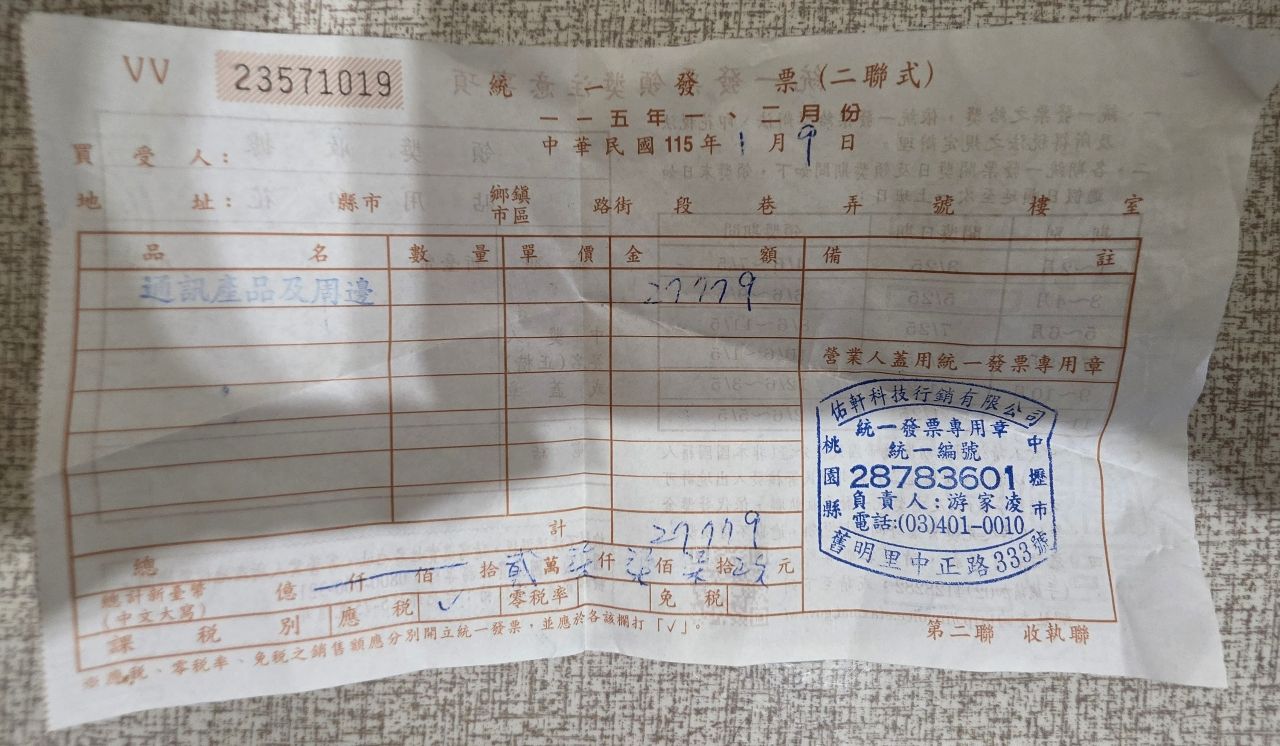 VV 23571019
統一發票(二聯式)
一一五年一、二月份
中華民國115年1月9日
買受人:
地址: 縣市 鄉鎮市區 路街 段 巷 弄 號 樓 室
品名 數量 單價 金額 備註
通訊產品及周邊 27779
營業人蓋用統一發票專用章
佑軒科技行銷有限公司
統一發票專用章
統一編號
28783601
負責人:游家凌
電話:(03)401-0010
桃園縣 中壢市
舊明里中正路333號
總計 27779
總計新臺幣
(中文大寫)
億 仟 佰 拾 貳 萬 柒 仟 柒 佰 柒 拾 元
課稅別 應稅 ✓ 零稅率 免稅
※應稅、零稅率、免稅之銷售額應分別開立統一發票,並應於各該欄打「√」。
第二聯 收執聯